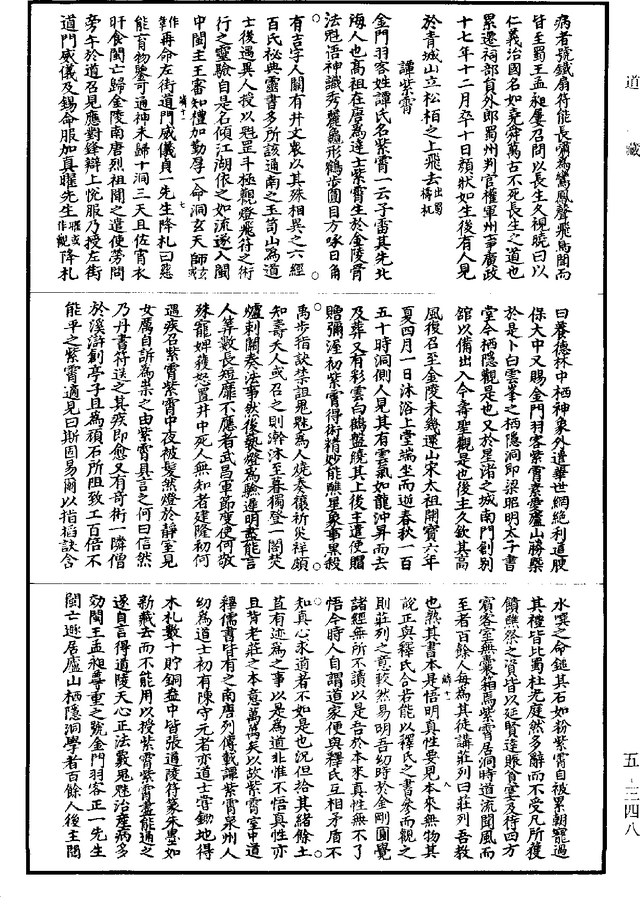 道藏
病者號鐵扇符能長嘯為鸞鳳聲飛鳥聞而
皆至蜀王孟昶屢召問以長生久視曉曰以
仁義治國名如堯舜萬古不死長生之道也
累遷祠部員外郎蜀州判官權軍州事廣政
十七年十二月卒十日顏狀如生後有人見
於青城山立松柏之上飛去出蜀檮杌
譚紫霄
金門羽客姓譚氏名紫霄一云子雷其先北
海人也高祖在唐為達士紫霄生於金陵骨
法魁梧神識秀麗龜形鶴步圓目方口日角
有吉字人間有井文衆以其殊相異之六經
百氏秘典靈書多所該通南之玉笥山為道
士後遇異人授以魁罡斗極觀燈飛符之術
行之靈驗自是名傾江湖依之如流遂入閩
中閩主王審知禮加勤厚一命洞玄天師
再命左街道門威儀貞一先生降札曰慈
能育物鑒可通神未歸十洞三天且佐宵衣
旰食閩亡歸金陵南唐烈祖聞之遣使勞問
旁午於道召見應對鋒辯上悅服乃授左街
道門威儀及錫命服加真曜先生降札
曰養德林中栖神象外遺華世網絶利道腴
保大中又賜金門羽客紫霄素愛廬山勝槩
於是卜白雲峯之栖隱洞即梁昭明太子書
堂今栖隱觀是也又於星渚之城南門創別
館以備出入今壽聖觀是也後主久欽其高
風復召至金陵未幾還山宋太祖開寶六年
夏四月一日沐浴上堂端坐而逝春秋一百
五十時洞側人見其有雲氣如龍沖昇而去
及葬又有彩雲白鶴盤繞其上後主遣使賵
贈彌渥初紫霄得術精妙能醮星象事黑殺
禹步指訣禁詛鬼魅為人燒奏禳祈災祥頗
知壽夭人或召之則齋沐至暮獨登一閣焚
爐剌闕奏法事然後爇燈為驗遲明盡能言
人筭數長短靡不應者武昌軍節度使何敬
殊寵婢獲怒置井中死人無知者建隆初何
遇疾召紫霄紫霄中夜被髮然燈於靜室見
女厲自訴為祟之由紫霄具言之何曰信然
乃丹書符送之其疾即愈又有奇術一隣僧
於溪滸創亭子且為頑石所阻致工百倍不
能平之紫霄適見曰斯固易爾以指掐訣含
水噀之命鎚其石如粉紫霄自被累朝寵過
其禮皆比蜀杜光庭然多辭而不受凡所獲
饋醮祭之資皆以延賢達賑食堂及待四方
賓客室無囊箱焉紫霄居洞時道流聞風而
至者百餘人每為其徒講莊列曰莊列吾教
也熟其書本是悟明真性要見本來無物其
說正與釋氏合若能以釋氏之書參而觀之
則莊列之意較然易明吾幼時於金剛圓覺
諸經無所不讀以是吾於本來真性無不了
悟今時人自謂道家便與釋氏互相矛盾不
知真心求道者不如是也況但拾其緒餘土
苴有迹為之事以是為道非惟不悟真性亦
且背老莊之本意萬萬矣以故紫霄室中道
釋儒書皆有之南唐列傳載譚紫霄泉州人
幼為道士初有陳守元者亦道士嘗鋤地得
木札數十貯銅盎中皆張道陵符篆朱墨如
新藏去而不能用以授紫霄紫霄盡能通之
遂自言得道陵天心正法劾鬼魅治疾病多
効閩王孟昶尊重之號金門羽客正一先生
閩亡遯居廬山栖隱洞學者百餘人後主聞
五-三四八